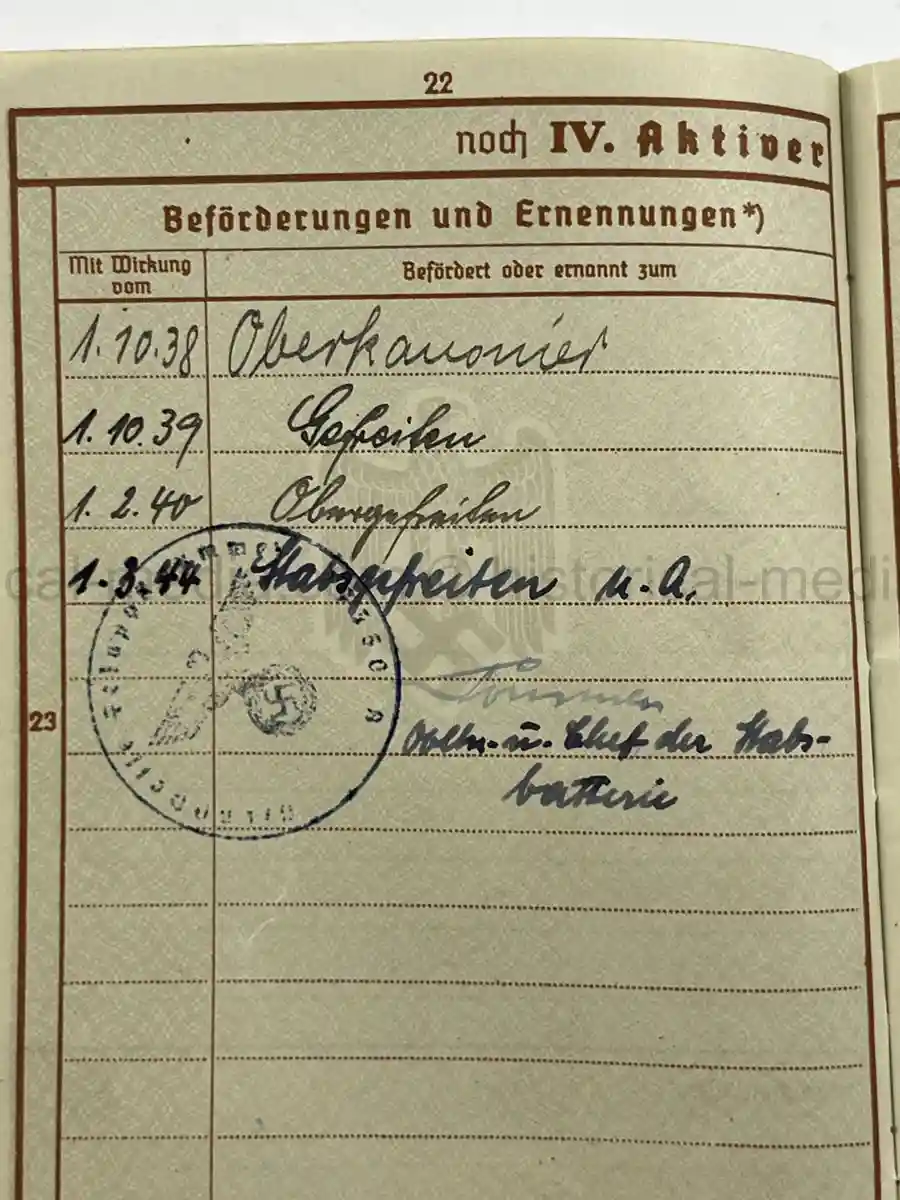 22
noch IV. Aktiver
Beförderungen und Ernennungen*)
Mit Wirkung vom
Befördert oder ernannt zum
1.10.38 Oberkanonier
1.10.39 Gefreiten
1.2.40 Obergefreiten
1.3.44 Stabsgefreiten u.A.
23
Obltn. u. Chef der Stabs-
batterie
Feldpostnummer
Dienststelle